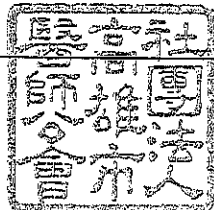 社團法人
高雄市
醫師公會